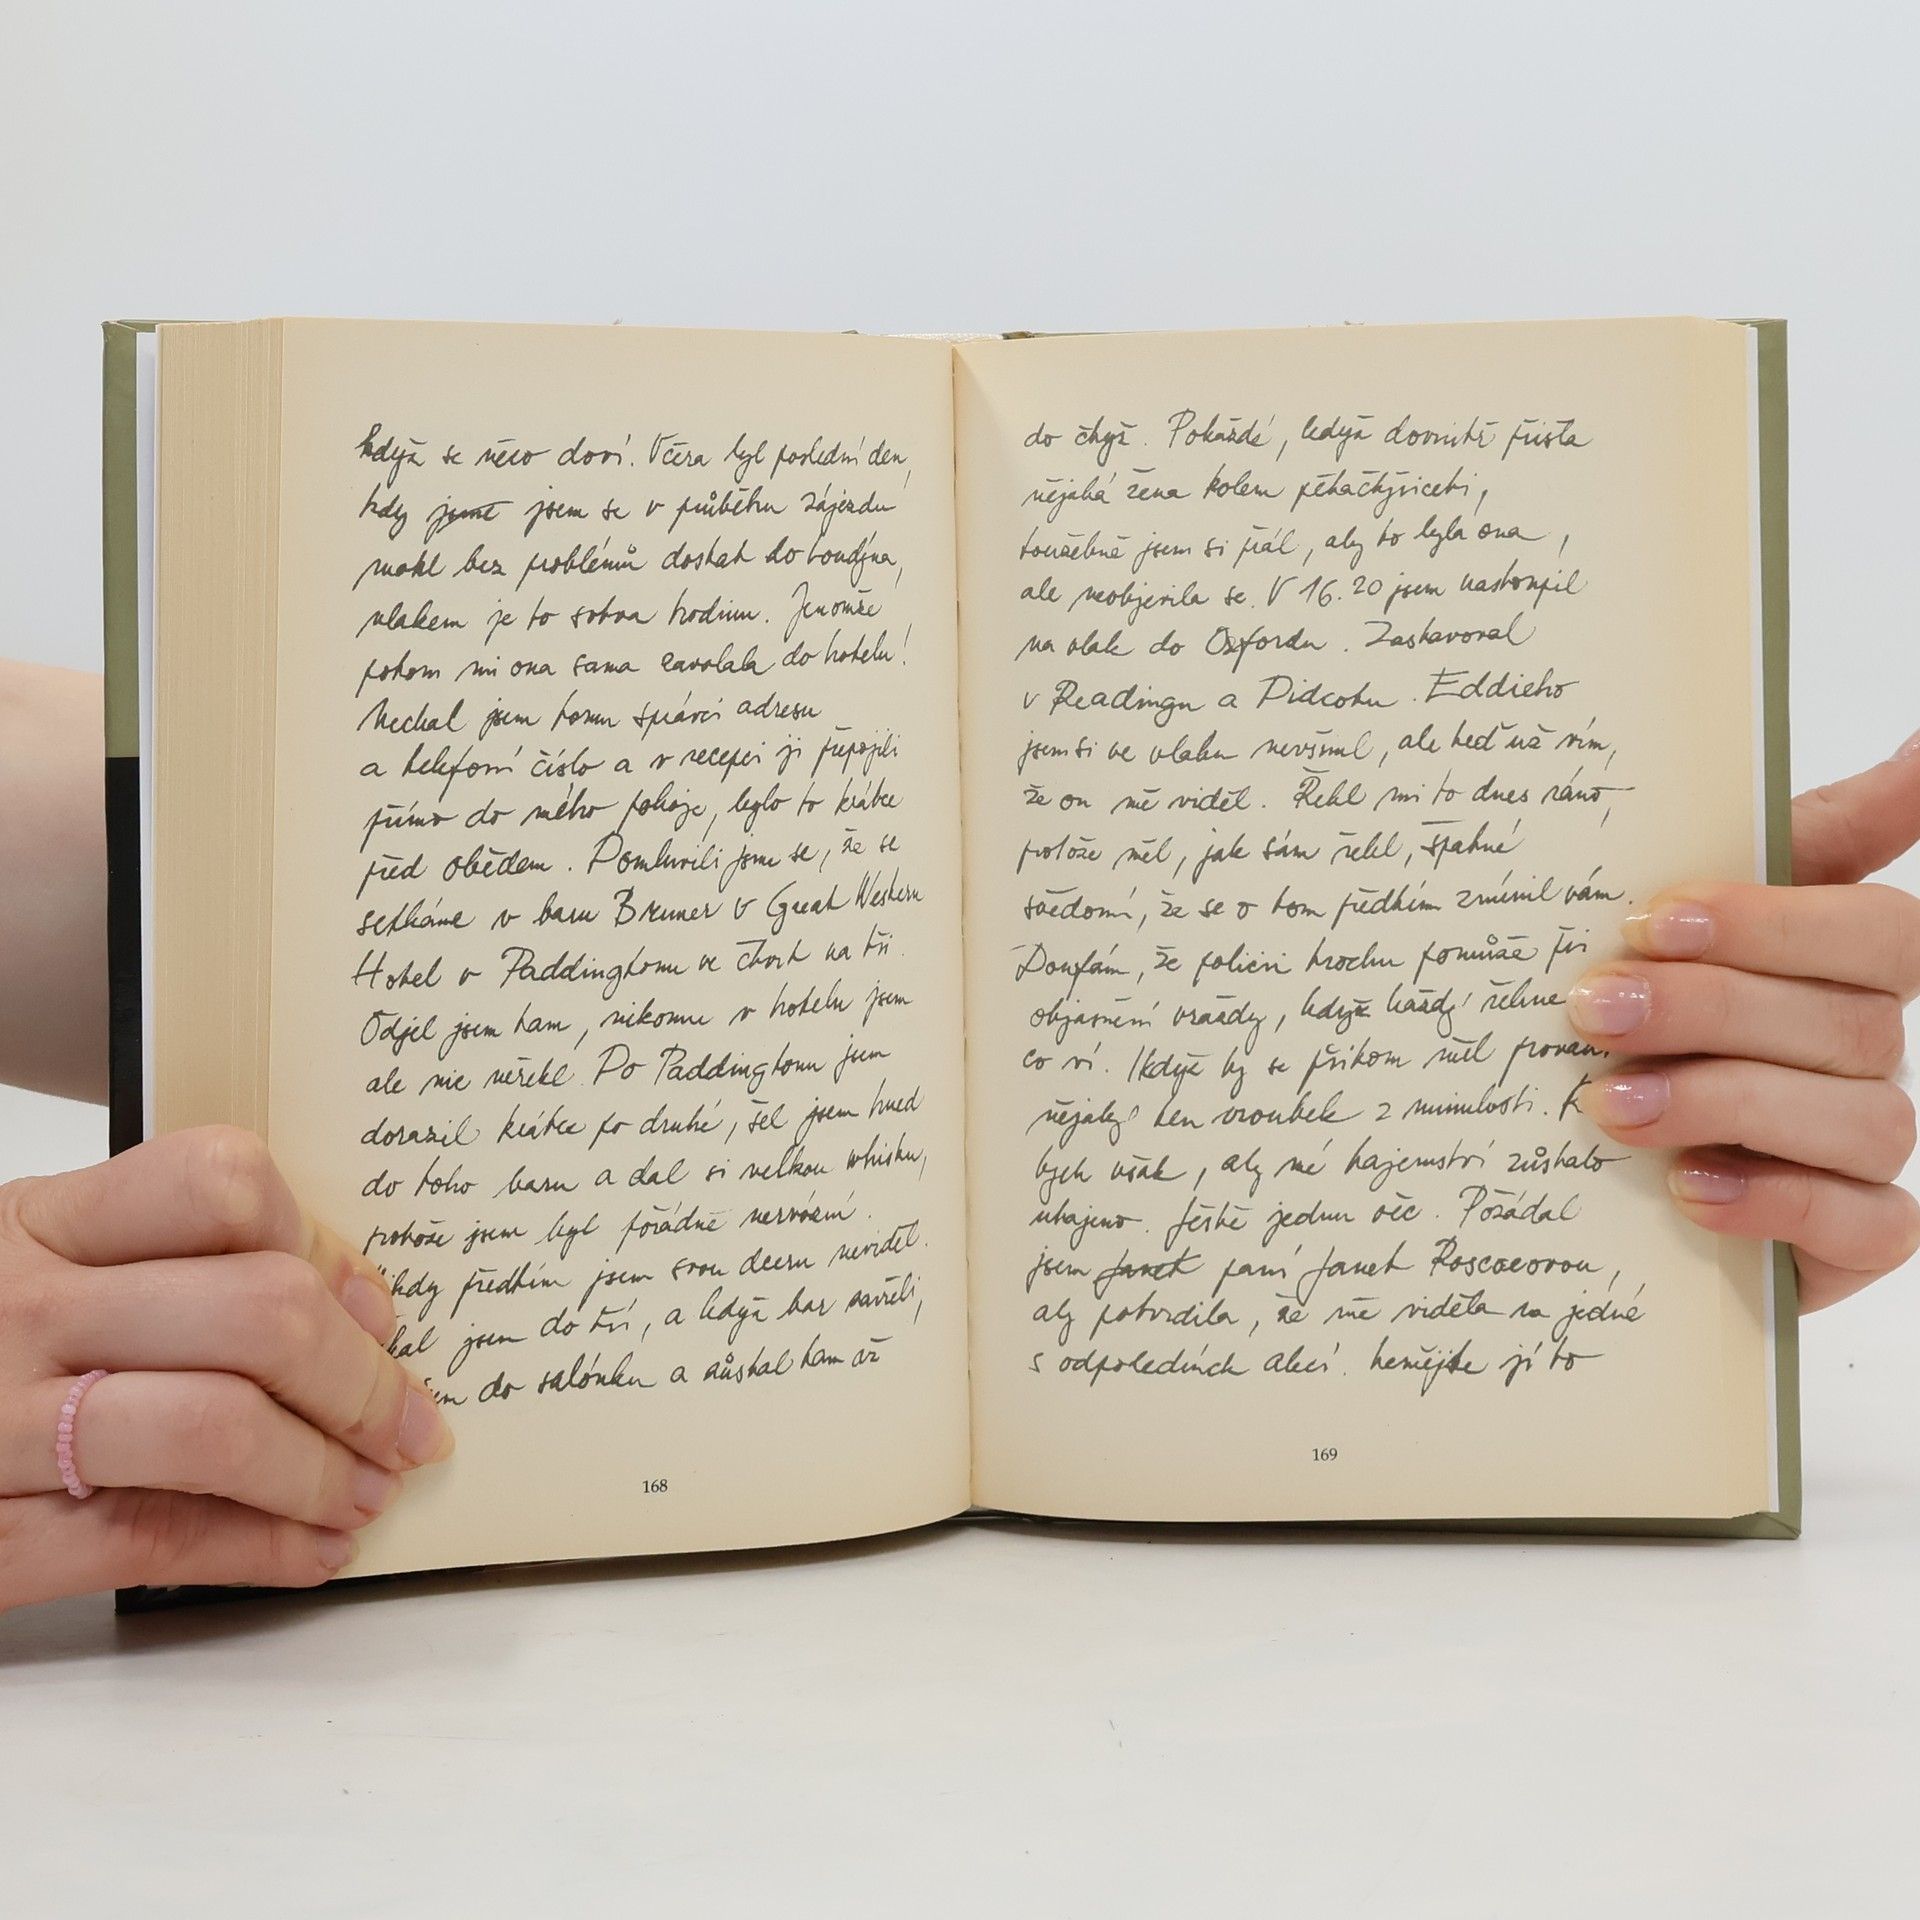 když se něco doví. Včera byl poslední den,
kdy jsme jsem se v průběhu zájezdu
mohl bez problémů dostat do Londýna,
vlakem je to sotva hodinu. Jenomže
potom mi ona sama zavolala do hotelu!
Nechal jsem tomu správci adresu
a telefonní číslo a v recepci ji přepojili
přímo do mého pokoje, bylo to krátce
před obědem. Domluvili jsme se, že se
setkáme v baru Brunner v Great Western
Hotel v Paddingtonu ve čtvrt na tři.
Odjel jsem tam, nikomu v hotelu jsem
ale nic neřekl. Do Paddingtonu jsem
dorazil krátce po druhé, šel jsem hned
do toho baru a dal si velkou whisku,
protože jsem byl pořádně nervózní.
předtím jsem svou dceru neviděl.
jsem do tří, a když bar zavřeli,
do salónku a zůstal tam až
168
do čtyř. Pokaždé, když dovnitř přišla
nějaká žena kolem pětačtyřiceti,
toužebně jsem si přál, aby to byla ona,
ale neobjevila se. V 16.20 jsem nastoupil
na vlak do Oxfordu. Zastavoval
v Readingu a Didcotu. Eddieho
jsem si ve vlaku nevšiml, ale teď už vím,
že on mě viděl. Řekl mi to dnes ráno,
protože měl, jak sám řekl, špatné
svědomí, že se o tom předtím zmínil vám.
Doufám, že policii trochu pomůže při
objasnění vraždy, když každý řekne
co ví. I když by se přitom měl provalit
nějaký ten vroubek z minulosti.
bych však, aby mé tajemství zůstalo
utajeno. Ještě jednu věc. Požádal
jsem Janet paní Janet Roscoeovou,
aby potvrdila, že mě viděla na jedné
s odpoledních akcí. Nemějte jí to
169